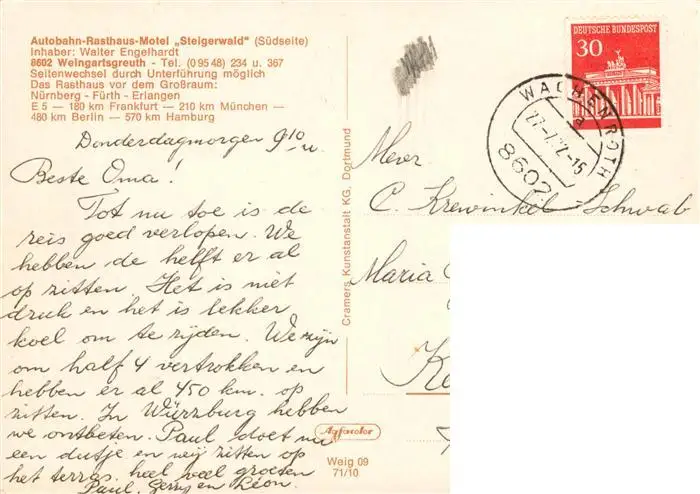 Autobahn-Rasthaus-Motel „Steigerwald" (Südseite)
Inhaber: Walter Engelhardt
8602 Weingartsgreuth - Tel. (0 95 48) 234 u. 367
Seitenwechsel durch Unterführung möglich
Das Rasthaus vor dem Großraum:
Nürnberg - Fürth - Erlangen
E 5 — 180 km Frankfurt — 210 km München —
480 km Berlin — 570 km Hamburg
Donderdagmorgen 9.10 u.
Beste Oma!
Tot nu toe is de
reis goed verlopen. We
hebben de helft er al
op zitten. Het is niet
druk en het is lekker
koel om te rijden. We zijn
om half 4 vertrokken en
hebben er al 450 km. op
zitten. In Würzburg hebben
we ontbeten. Paul doet nu
een dutje en wij zitten op
het terras. heel veel groeten
Paul, Gerry en Léon.
Cramers Kunstanstalt KG, Dortmund
Agfacolor
Weig 09
71/10
DEUTSCHE BUNDESPOST
30
WACHENROTH
a
27.-7.72.-15
8602
Mevr.
C. Krewinkel-Schwab
Maria